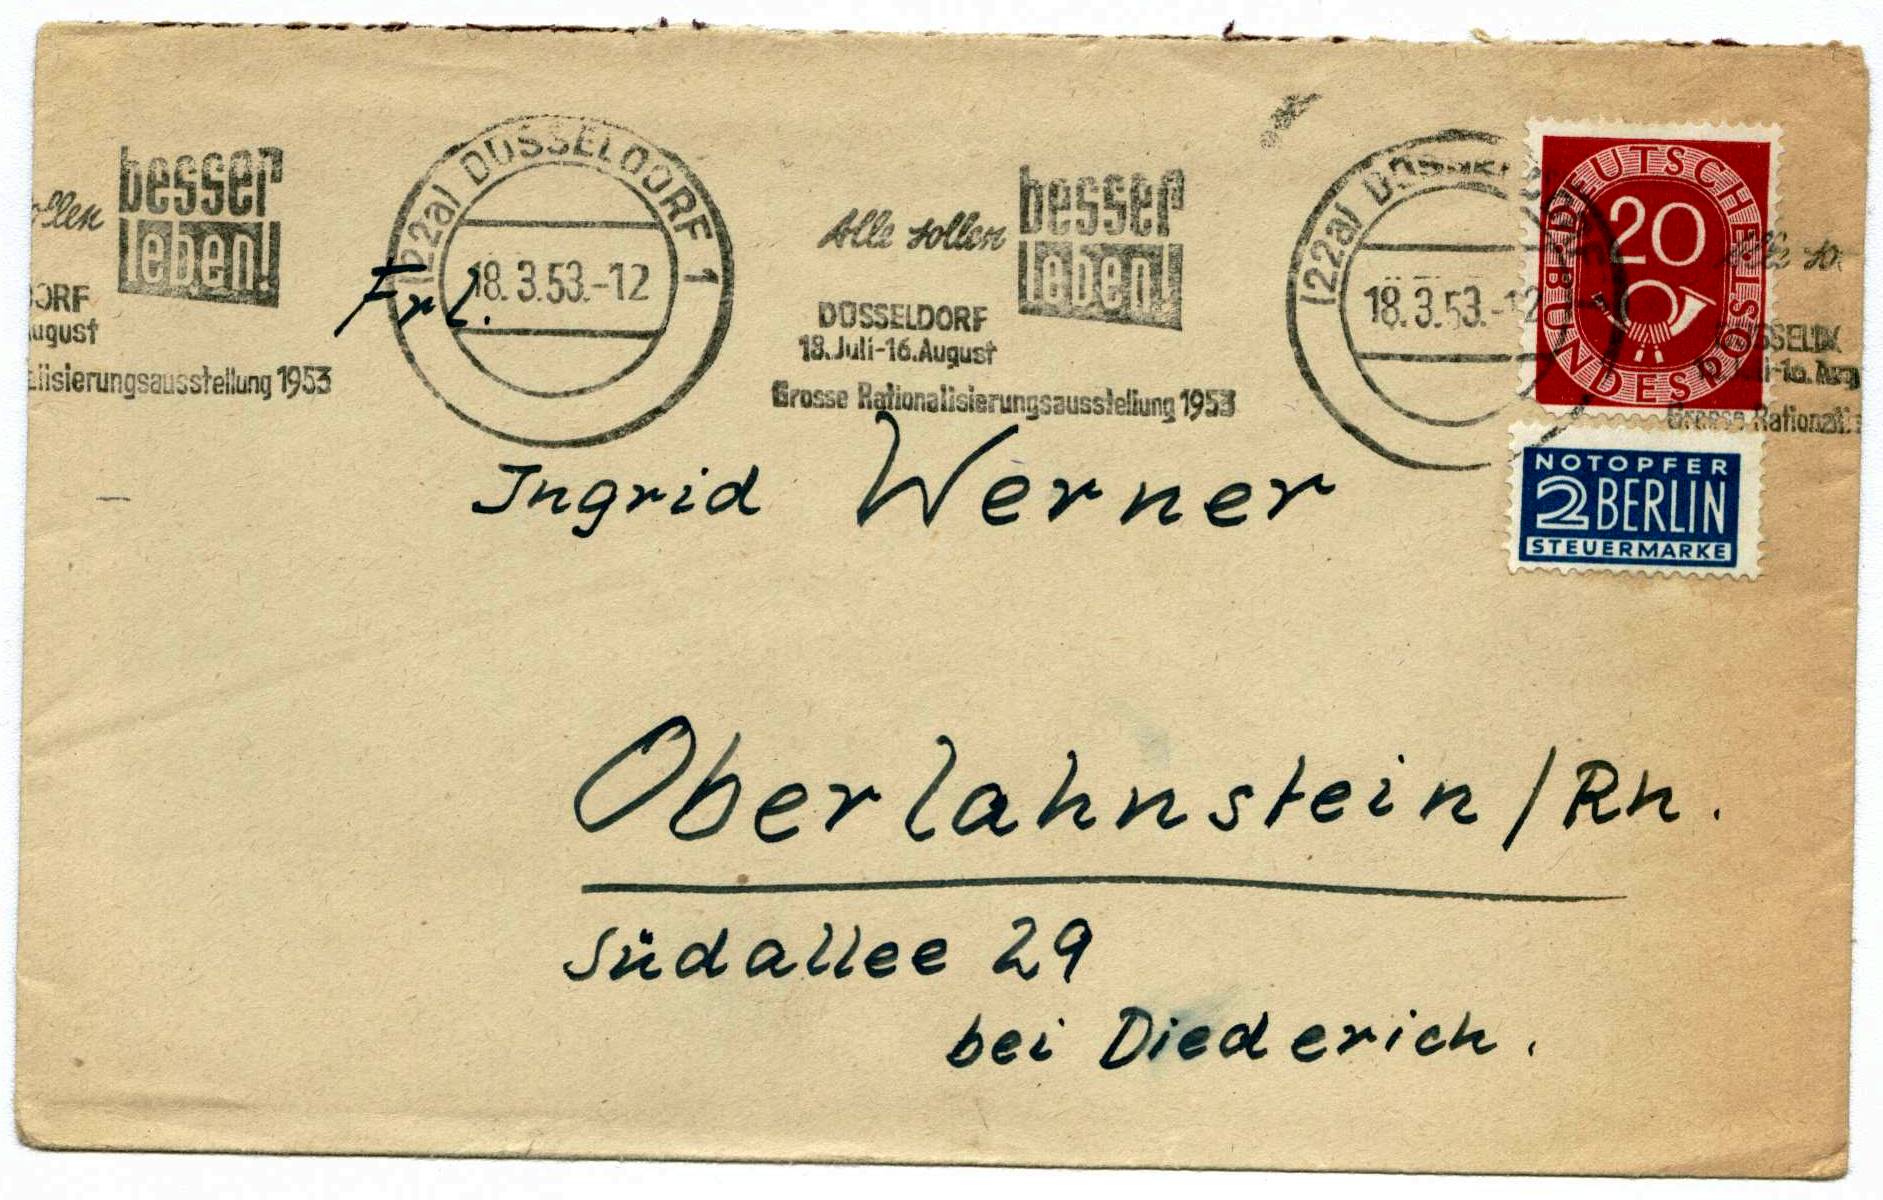 besser
leben!
August
Rationalisierungsausstellung 1953
(22a) DÜSSELDORF 1
18.3.53.-12
Alle sollen
besser
leben!
DÜSSELDORF
18. Juli-16. August
Grosse Rationalisierungsausstellung 1953
(22a) DÜSSELDORF
18.3.53.-12
DEUTSCHE BUNDESPOST
20
NOTOPFER
2 BERLIN
STEUERMARKE
Frl.
Ingrid Werner
Oberlahnstein / Rh.
Südallee 29
bei Diederich.